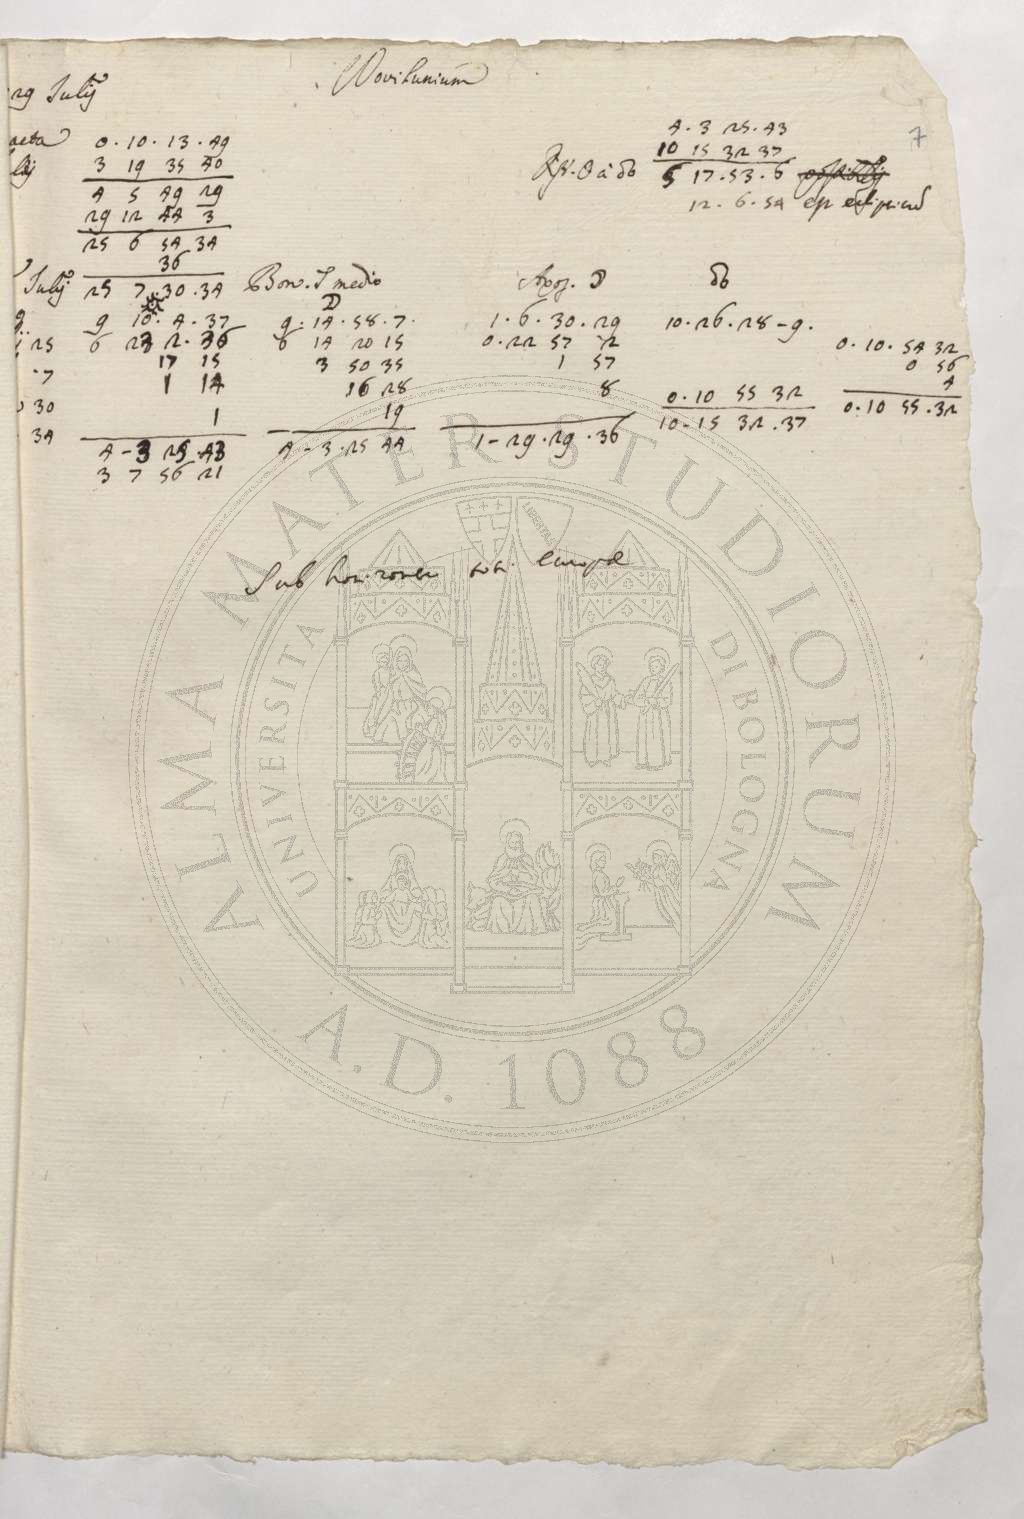 Novilunium
29 Julij
7
0. 10. 13. 49
3 19 35 40
4 5 49 29
29 12 44 3
25 6 54 34
36
Julij 25 7. 30. 34
4. 3 25. 43
10 15 32 37
5 17. 53. 6
12. 6. 54
medio
☽
Apog. ☽
☊
9 10. 4. 37
6 23 2. 36
17 15
1 14
1
4 - 3 25. 43
3 7 56 21
9. 14. 58. 7.
6 14 20 15
3 50 35
16 28
19
4 - 3. 25 44
1. 6. 30. 29
0. 22 57 2
1 57
8
1 - 29. 29. 36
10. 26. 28 - 9.
0. 10 55 32
10 - 15 32. 37
0. 10. 54 32
0 56
4
0. 10 55. 32
25
7
30
34
Sub horizonte tot. europæ
ALMA MATER STUDIORUM
UNIVERSITA DI BOLOGNA
A.D. 1088